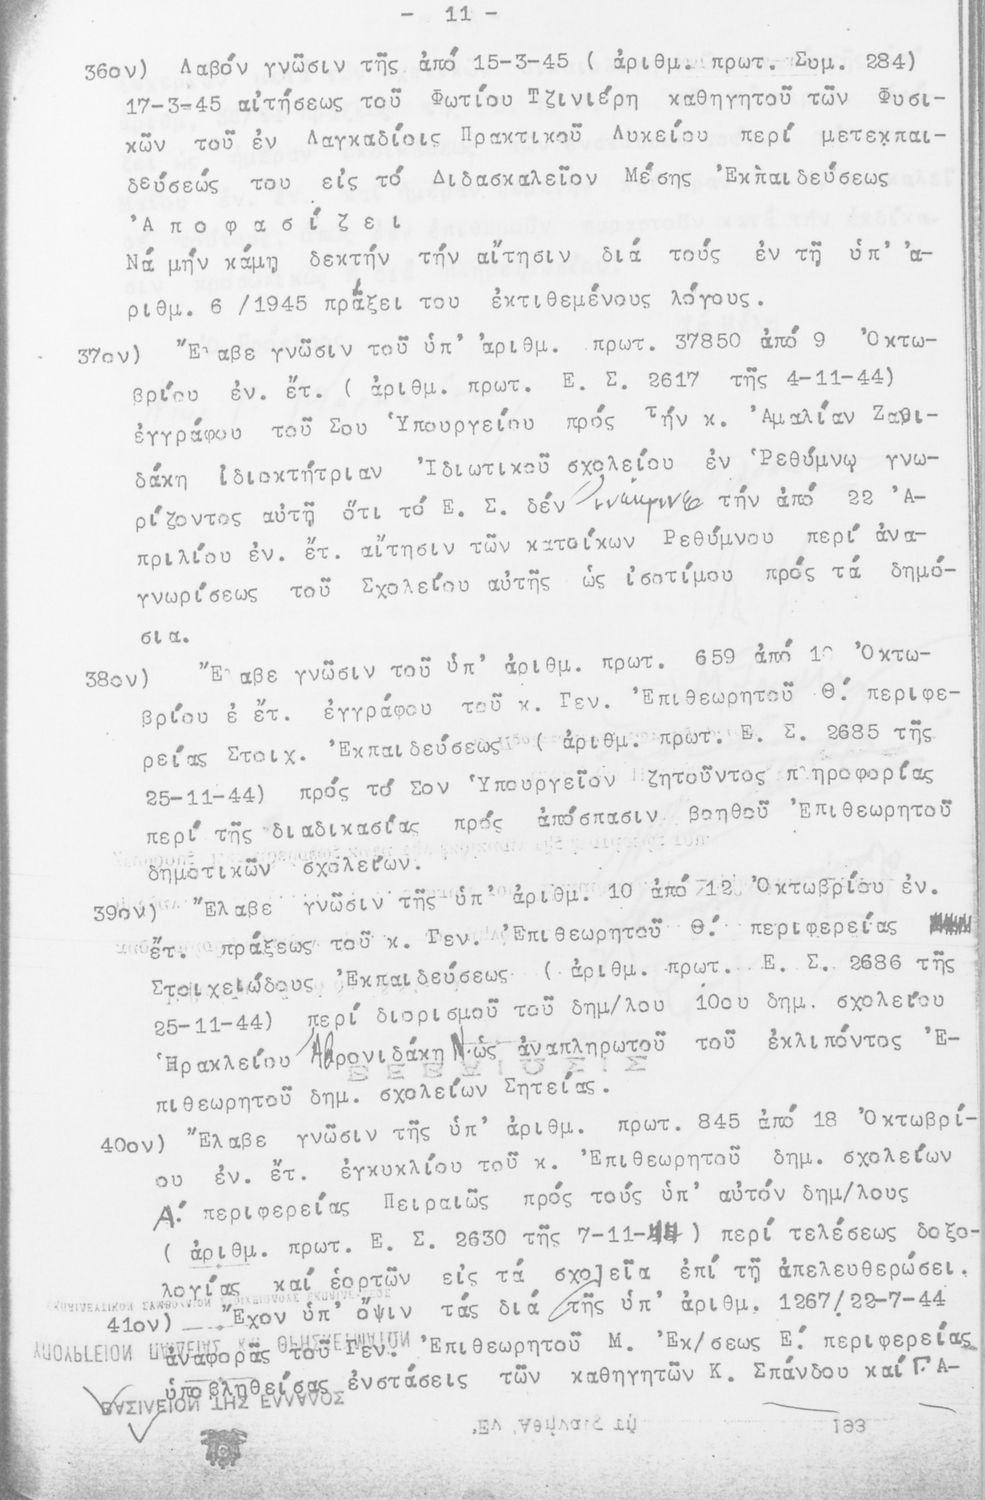 - 11 -
36ον) Λαβόν γνῶσιν τῆς ἀπό 15-3-45 ( ἀριθμ. πρωτ. Συμ. 284)
17-3-45 αἰτήσεως τοῦ Φωτίου Τζινιέρη καθηγητοῦ τῶν Φυσι-
κῶν τοῦ ἐν Λαγκαδίοις Πρακτικοῦ Λυκείου περί μετεκπαι-
δεύσεώς του εἰς τό Διδασκαλεῖον Μέσης Ἐκπαιδεύσεως
Ἀ π ο φ α σ ί ζ ε ι
Νά μήν κάμῃ δεκτήν τήν αἴτησιν διά τούς ἐν τῇ ὑπ' ἀ-
ριθμ. 6 /1945 πράξει του ἐκτιθεμένους λόγους.
37ον) Ἔλαβε γνῶσιν τοῦ ὑπ' ἀριθμ. πρωτ. 37850 ἀπό 9 Ὀκτω-
βρίου ἐν. ἔτ. ( ἀριθμ. πρωτ. Ε. Σ. 2617 τῆς 4-11-44)
ἐγγράφου τοῦ Σου Ὑπουργείου πρός τήν κ. Ἀμαλίαν Ζαφι-
δάκη ἰδιοκτήτριαν Ἰδιωτικοῦ σχολείου ἐν Ῥεθύμνῳ γνω-
ρίζοντος αὐτῇ ὅτι τό Ε. Σ. δέν ἐνέκρινε τήν ἀπό 22 Ἀ-
πριλίου ἐν. ἔτ. αἴτησιν τῶν κατοίκων Ρεθύμνου περί ἀνα-
γνωρίσεως τοῦ Σχολείου αὐτῆς ὡς ἰσοτίμου πρός τά δημό-
σια.
38ον) Ἔλαβε γνῶσιν τοῦ ὑπ' ἀριθμ. πρωτ. 659 ἀπό Ὀκτω-
βρίου ἐ ἔτ. ἐγγράφου τοῦ κ. Γεν. Ἐπιθεωρητοῦ Θ΄. περιφε-
ρείας Στοιχ. Ἐκπαιδεύσεως ( ἀριθμ. πρωτ. Ε. Σ. 2685 τῆς
25-11-44) πρός τό Σον Ὑπουργεῖον ζητοῦντος πληροφορίας
περί τῆς διαδικασίας πρός ἀπόσπασιν βοηθοῦ Ἐπιθεωρητοῦ
δημοτικῶν σχολείων.
39ον) Ἔλαβε γνῶσιν τῆς ὑπ' ἀριθμ. 10 ἀπό 12 Ὀκτωβρίου ἐν.
ἔτ. πράξεως τοῦ κ. Γεν. Ἐπιθεωρητοῦ Θ΄. περιφερείας
Στοιχειώδους Ἐκπαιδεύσεως ( ἀριθμ. πρωτ. Ε. Σ. 2686 τῆς
25-11-44) περί διορισμοῦ τοῦ δημ/λου 10ου δημ. σχολείου
Ἡρακλείου Ν. ὡς ἀναπληρωτοῦ τοῦ ἐκλιπόντος Ἐ-
πιθεωρητοῦ δημ. σχολείων Σητείας.
40ον) Ἔλαβε γνῶσιν τῆς ὑπ' ἀριθμ. πρωτ. 845 ἀπό 18 Ὀκτωβρί-
ου ἐν. ἔτ. ἐγκυκλίου τοῦ κ. Ἐπιθεωρητοῦ δημ. σχολείων
Α΄. περιφερείας Πειραιῶς πρός τούς ὑπ' αὐτόν δημ/λους
( ἀριθμ. πρωτ. Ε. Σ. 2630 τῆς 7-11-44 ) περί τελέσεως δοξο-
λογίας καί ἑορτῶν εἰς τά σχολεῖα ἐπί τῇ ἀπελευθερώσει.
41ον) Ἔχον ὑπ' ὄψιν τάς διά τῆς ὑπ' ἀριθμ. 1267/22-7-44
ἀναφορᾶς τοῦ Γεν. Ἐπιθεωρητοῦ Μ. Ἐκ/σεως Ε΄. περιφερείας
ὑποβληθείσας ἐνστάσεις τῶν καθηγητῶν Κ. Σπάνδου καί Γ. Α-